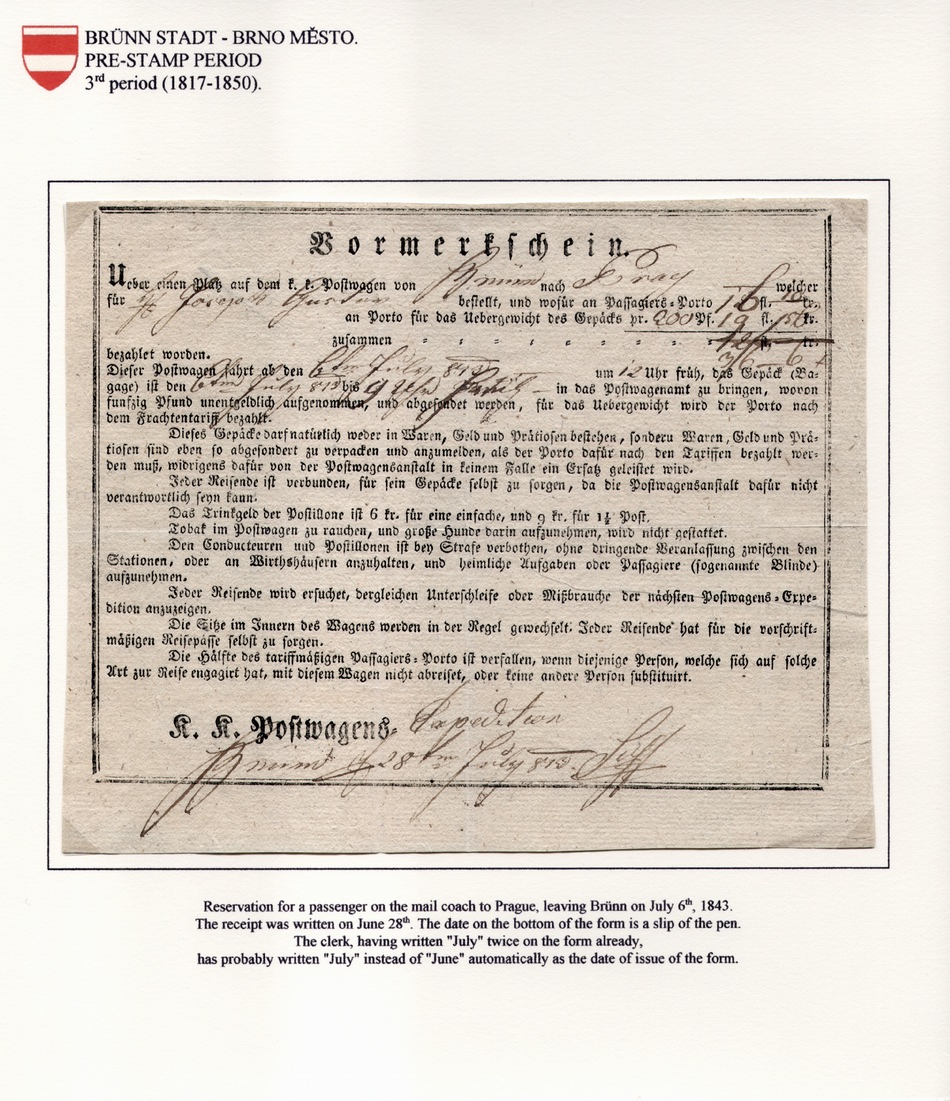 BRÜNN STADT - BRNO MĚSTO.
PRE-STAMP PERIOD
3rd period (1817-1850).
Vormerkschein.
Ueber einen Platz auf dem k. k. Postwagen von Brünn nach Prag welcher
für Joseph Gustav bestellt, und wofür an Passagiers-Porto fl. kr.
an Porto für das Uebergewicht des Gepäcks pr. 200 Pf. 19 fl. kr.
zusammen fl. kr.
bezahlet worden.
Dieser Postwagen fährt ab den 6ten July 843 um 12 Uhr früh, das Gepäck (Ba-
gage) ist den 6ten July 843 bis 9 Uhr in das Postwagenamt zu bringen, wovon
funfzig Pfund unentgeldlich aufgenommen, und abgesendet werden, für das Uebergewicht wird der Porto nach
dem Frachtentariff bezahlt.
Dieses Gepäcke darf natürlich weder in Waren, Geld und Prätiosen bestehen, sondern Waren, Geld und Prä-
tiosen sind eben so abgesondert zu verpacken und anzumelden, als der Porto dafür nach den Tariffen bezahlt wer-
den muß, widrigens dafür von der Postwagensanstalt in keinem Falle ein Ersatz geleistet wird.
Jeder Reisende ist verbunden, für sein Gepäcke selbst zu sorgen, da die Postwagensanstalt dafür nicht
verantwortlich seyn kann.
Das Trinkgeld der Postillone ist 6 kr. für eine einfache, und 9 kr. für 1½ Post.
Tobak im Postwagen zu rauchen, und große Hunde darin aufzunehmen, wird nicht gestattet.
Den Conducteuren und Postillonen ist bey Strafe verbothen, ohne dringende Veranlassung zwischen den
Stationen, oder an Wirthshäusern anzuhalten, und heimliche Aufgaben oder Passagiere (sogenannte Blinde)
aufzunehmen.
Jeder Reisende wird ersuchet, dergleichen Unterschleife oder Mißbrauche der nächsten Postwagens-Expe-
dition anzuzeigen.
Die Sitze im Innern des Wagens werden in der Regel gewechselt. Jeder Reisende hat für die vorschrift-
mäßigen Reisepässe selbst zu sorgen.
Die Hälfte des tariffmäßigen Passagiers-Porto ist verfallen, wenn diejenige Person, welche sich auf solche
Art zur Reise engagirt hat, mit diesem Wagen nicht abreiset, oder keine andere Person substituirt.
K. K. Postwagens- Expedition
Brünn 28ten July 843.
Reservation for a passenger on the mail coach to Prague, leaving Brünn on July 6th, 1843.
The receipt was written on June 28th. The date on the bottom of the form is a slip of the pen.
The clerk, having written "July" twice on the form already,
has probably written "July" instead of "June" automatically as the date of issue of the form.